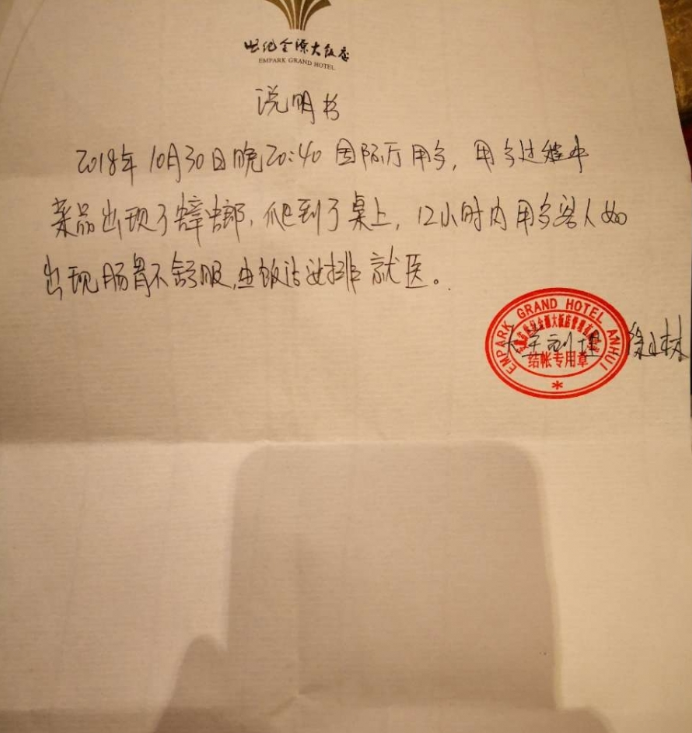 世纪金源大饭店
EMPARK GRAND HOTEL
说明书
2018年10月30日晚20:40 国际厅用餐,用餐过程中
菜品出现了蟑螂,爬到了桌上,12小时内用餐客人如
出现肠胃不舒服,由饭店安排就医。
EMPARK GRAND HOTEL ANHUI
结帐专用章